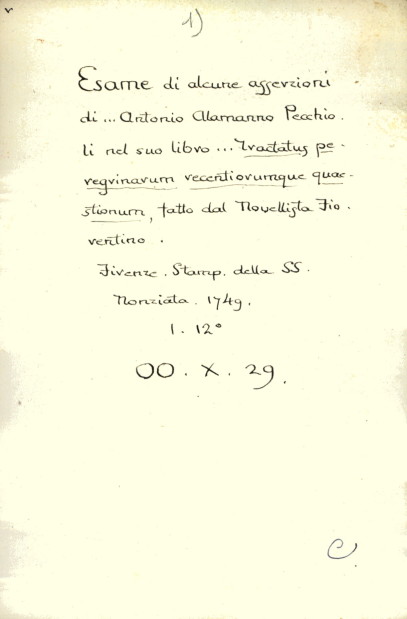 1)
Esame di alcune asserzioni
di ... Antonio Alamanno Pecchio.
li nel suo libro ... Tractatus pe-
regrinarum recentiorumque quae-
stionum, fatto dal Novellista Fio-
rentino.
Firenze. Stamp. della SS.
Nonziata. 1749.
1. 12°
OO. X. 29.
C